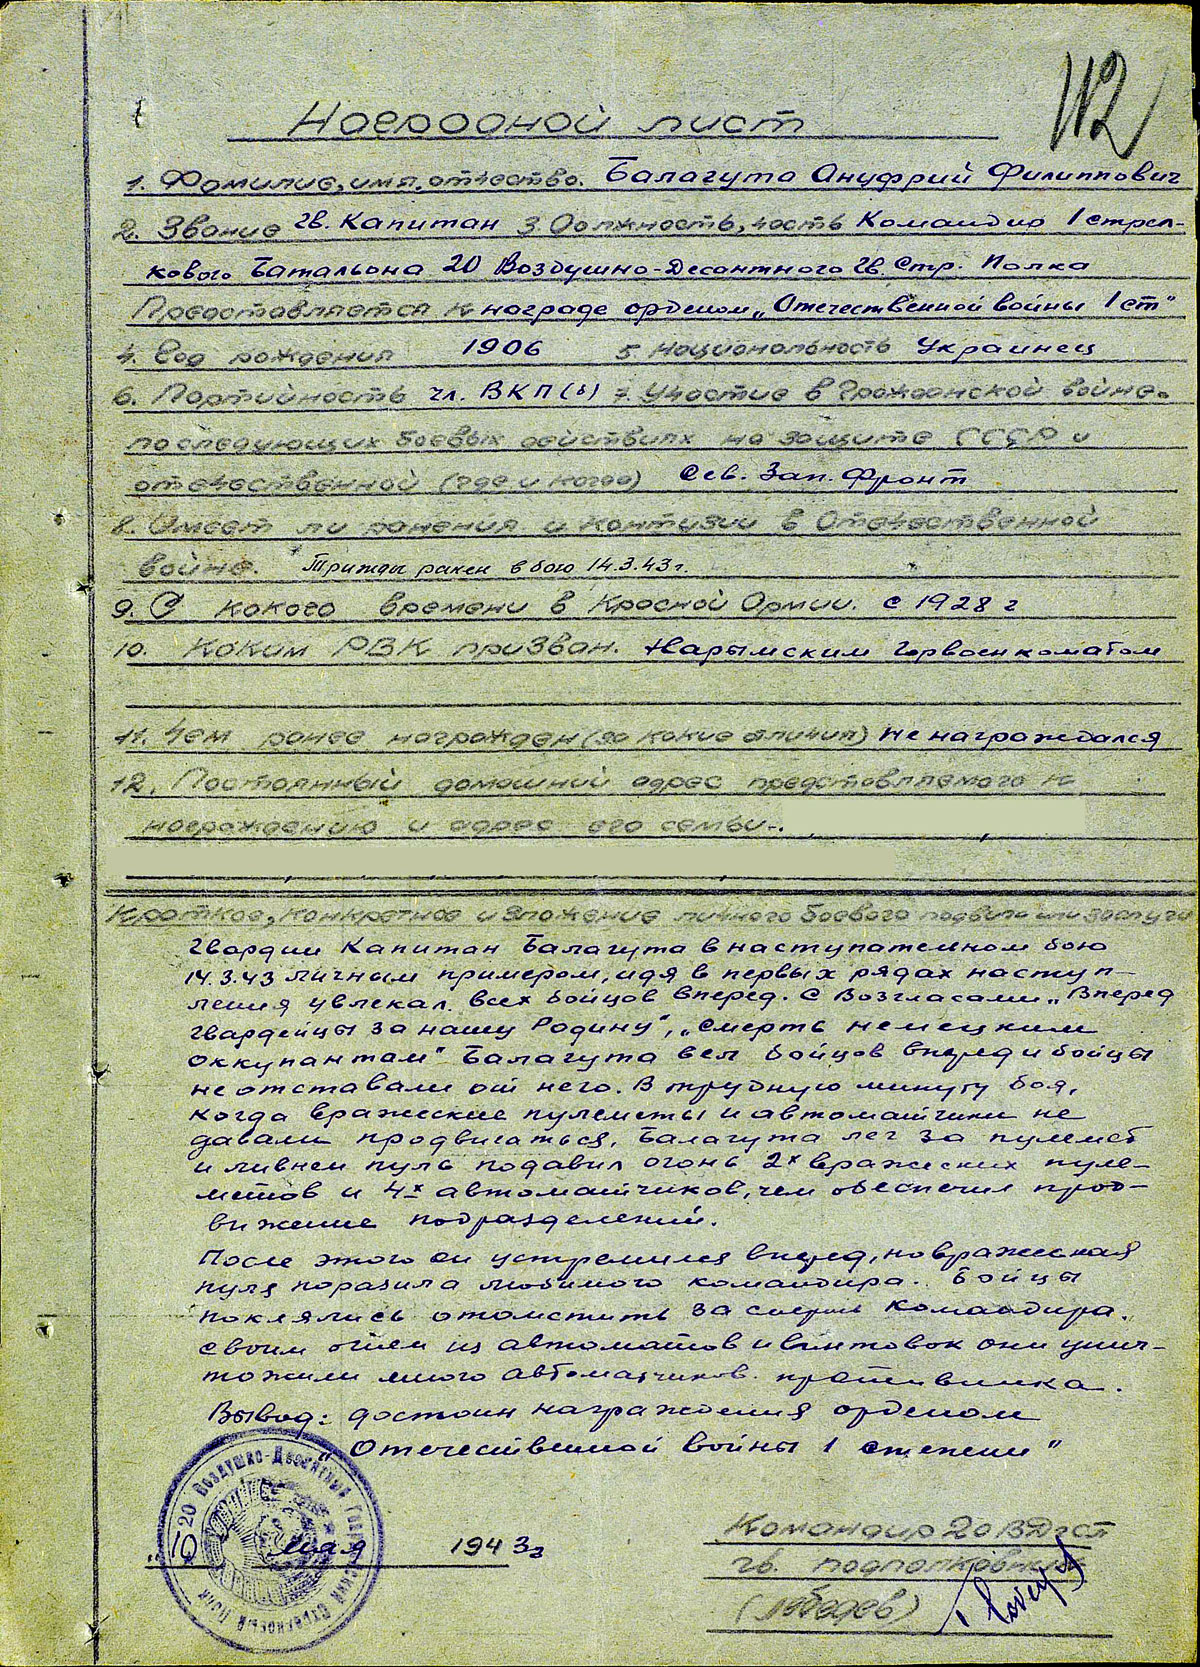 112
Наградной лист
1. Фамилия, имя, отчество. Балагута Ануфрий Филиппович
2. Звание гв. Капитан 3 Должность, часть Командир 1 стрел-
кового Батальона 20 Воздушно-Десантного Гв. Стр. Полка
Представляется к награде орденом „Отечественной войны 1 ст"
4. Год рождения 1906 5. Национальность Украинец
6. Партийность чл. ВКП(б) 7. Участие в Гражданской войне.
последующих боевых действиях на защите СССР и
отечественной (где и когда) Сев. Зап. Фронт
8. Имеет ли ранения и контузии в Отечественной
войне. Трижды ранен в бою 14.3.43 г.
9. С какого времени в Красной Армии. с 1928 г
10. Каким РВК призван. Нарымским горвоенкоматом
11. Чем ранее награжден (за какие отличия) не награждался
12. Постоянный домашний адрес представляемого к
награждению и адрес его семьи-.
Краткое, конкретное изложение личного боевого подвига или заслуги
Гвардии Капитан Балагута в наступательном бою
14.3.43 личным примером, идя в первых рядах наступ-
ления увлекал всех бойцов вперед. С возгласами „Вперед
гвардейцы за нашу Родину", „смерть немецким
оккупантам" Балагута вел бойцов вперед и бойцы
не отставали от него. В трудную минуту боя,
когда вражеские пулеметы и автоматчики не
давали продвигаться, Балагута лег за пулемет
и ливнем пуль подавил огонь 2х вражеских пуле-
метов и 4х автоматчиков, чем обеспечил прод-
вижение подразделений.
После этого он устремился вперед, но вражеская
пуля поразила любимого командира. Бойцы
поклялись отомстить за смерть командира.
своим огнем из автоматов и винтовок они унич-
тожили много автоматчиков противника.
Вывод: достоин награждения орденом
„Отечественной войны 1 степени"
20 Воздушно-Десантный Гвардейский Стрелковый Полк
„10 мая 1943 г
Командир 20 ВДгсп
гв. подполковник
(Лебедев)